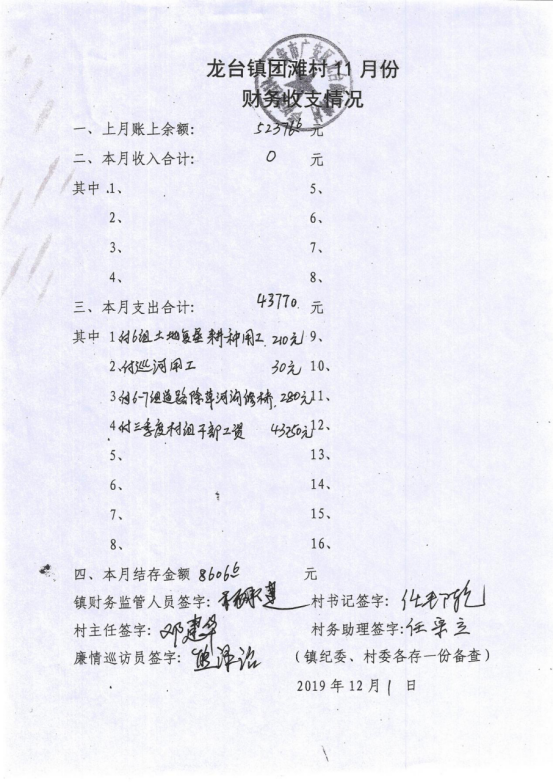 龙台镇团滩村11月份
财务收支情况
一、上月账上余额: 52376⁶ 元
二、本月收入合计: 0 元
其中 1、 5、
2、 6、
3、 7、
4、 8、
三、本月支出合计: 43770 元
其中 1付6组土地复垦耕种用工 210元 9、
2.付巡河用工 30元 10、
3付6-7组道路除草河沟修桥 280元 11、
4付三季度村组干部工资 43250元 12、
5、 13、
6、 14、
7、 15、
8、 16、
四、本月结存金额 8606⁶ 元
镇财务监管人员签字: 村书记签字:
村主任签字: 邓建华 村务助理签字: 任采立
廉情巡访员签字: 熊泽治 (镇纪委、村委各存一份备查)
2019年12月1日